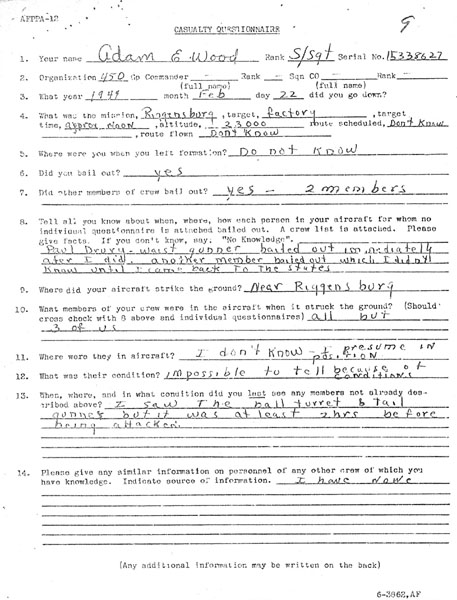 AFPPA-12
9
CASUALTY QUESTIONNAIRE
1. Your name Adam E Wood Rank S/Sgt Serial No. 15338627
2. Organization 450 Gp Commander - Rank - Sqn CO - Rank -
(full name) (full name)
3. What year 1944 month Feb day 22 did you go down?
4. What was the mission, Riggensburg, target, factory, target
time, approx noon, altitude, 23,000 route scheduled, Don't Know
, route flown Don't Know
5. Where were you when you left formation? Do not know
6. Did you bail out? yes
7. Did other members of crew bail out? yes - 2 members
8. Tell all you know about when, where, how each person in your aircraft for whom no
individual questionnaire is attached bailed out. A crew list is attached. Please
give facts. If you don't know, say, "No Knowledge".
Paul Drury - waist gunner bailed out immediately
after I did, another member bailed out which I didn't
know until I came back to the states
9. Where did your aircraft strike the ground? Near Riggensburg
10. What members of your crew were in the aircraft when it struck the ground? (Should
cross check with 8 above and individual questionnaires) all but
3 of us
11. Where were they in aircraft? I don't know - I presume in
position
12. What was their condition? impossible to tell because of
conditions
13. When, where, and in what condition did you last see any members not already des-
cribed above? I saw The ball turret & tail
gunner but it was at least 2hrs before
being attacked.
14. Please give any similar information on personnel of any other crew of which you
have knowledge. Indicate source of information. I have None
(Any additional information may be written on the back)
6-3862,AF